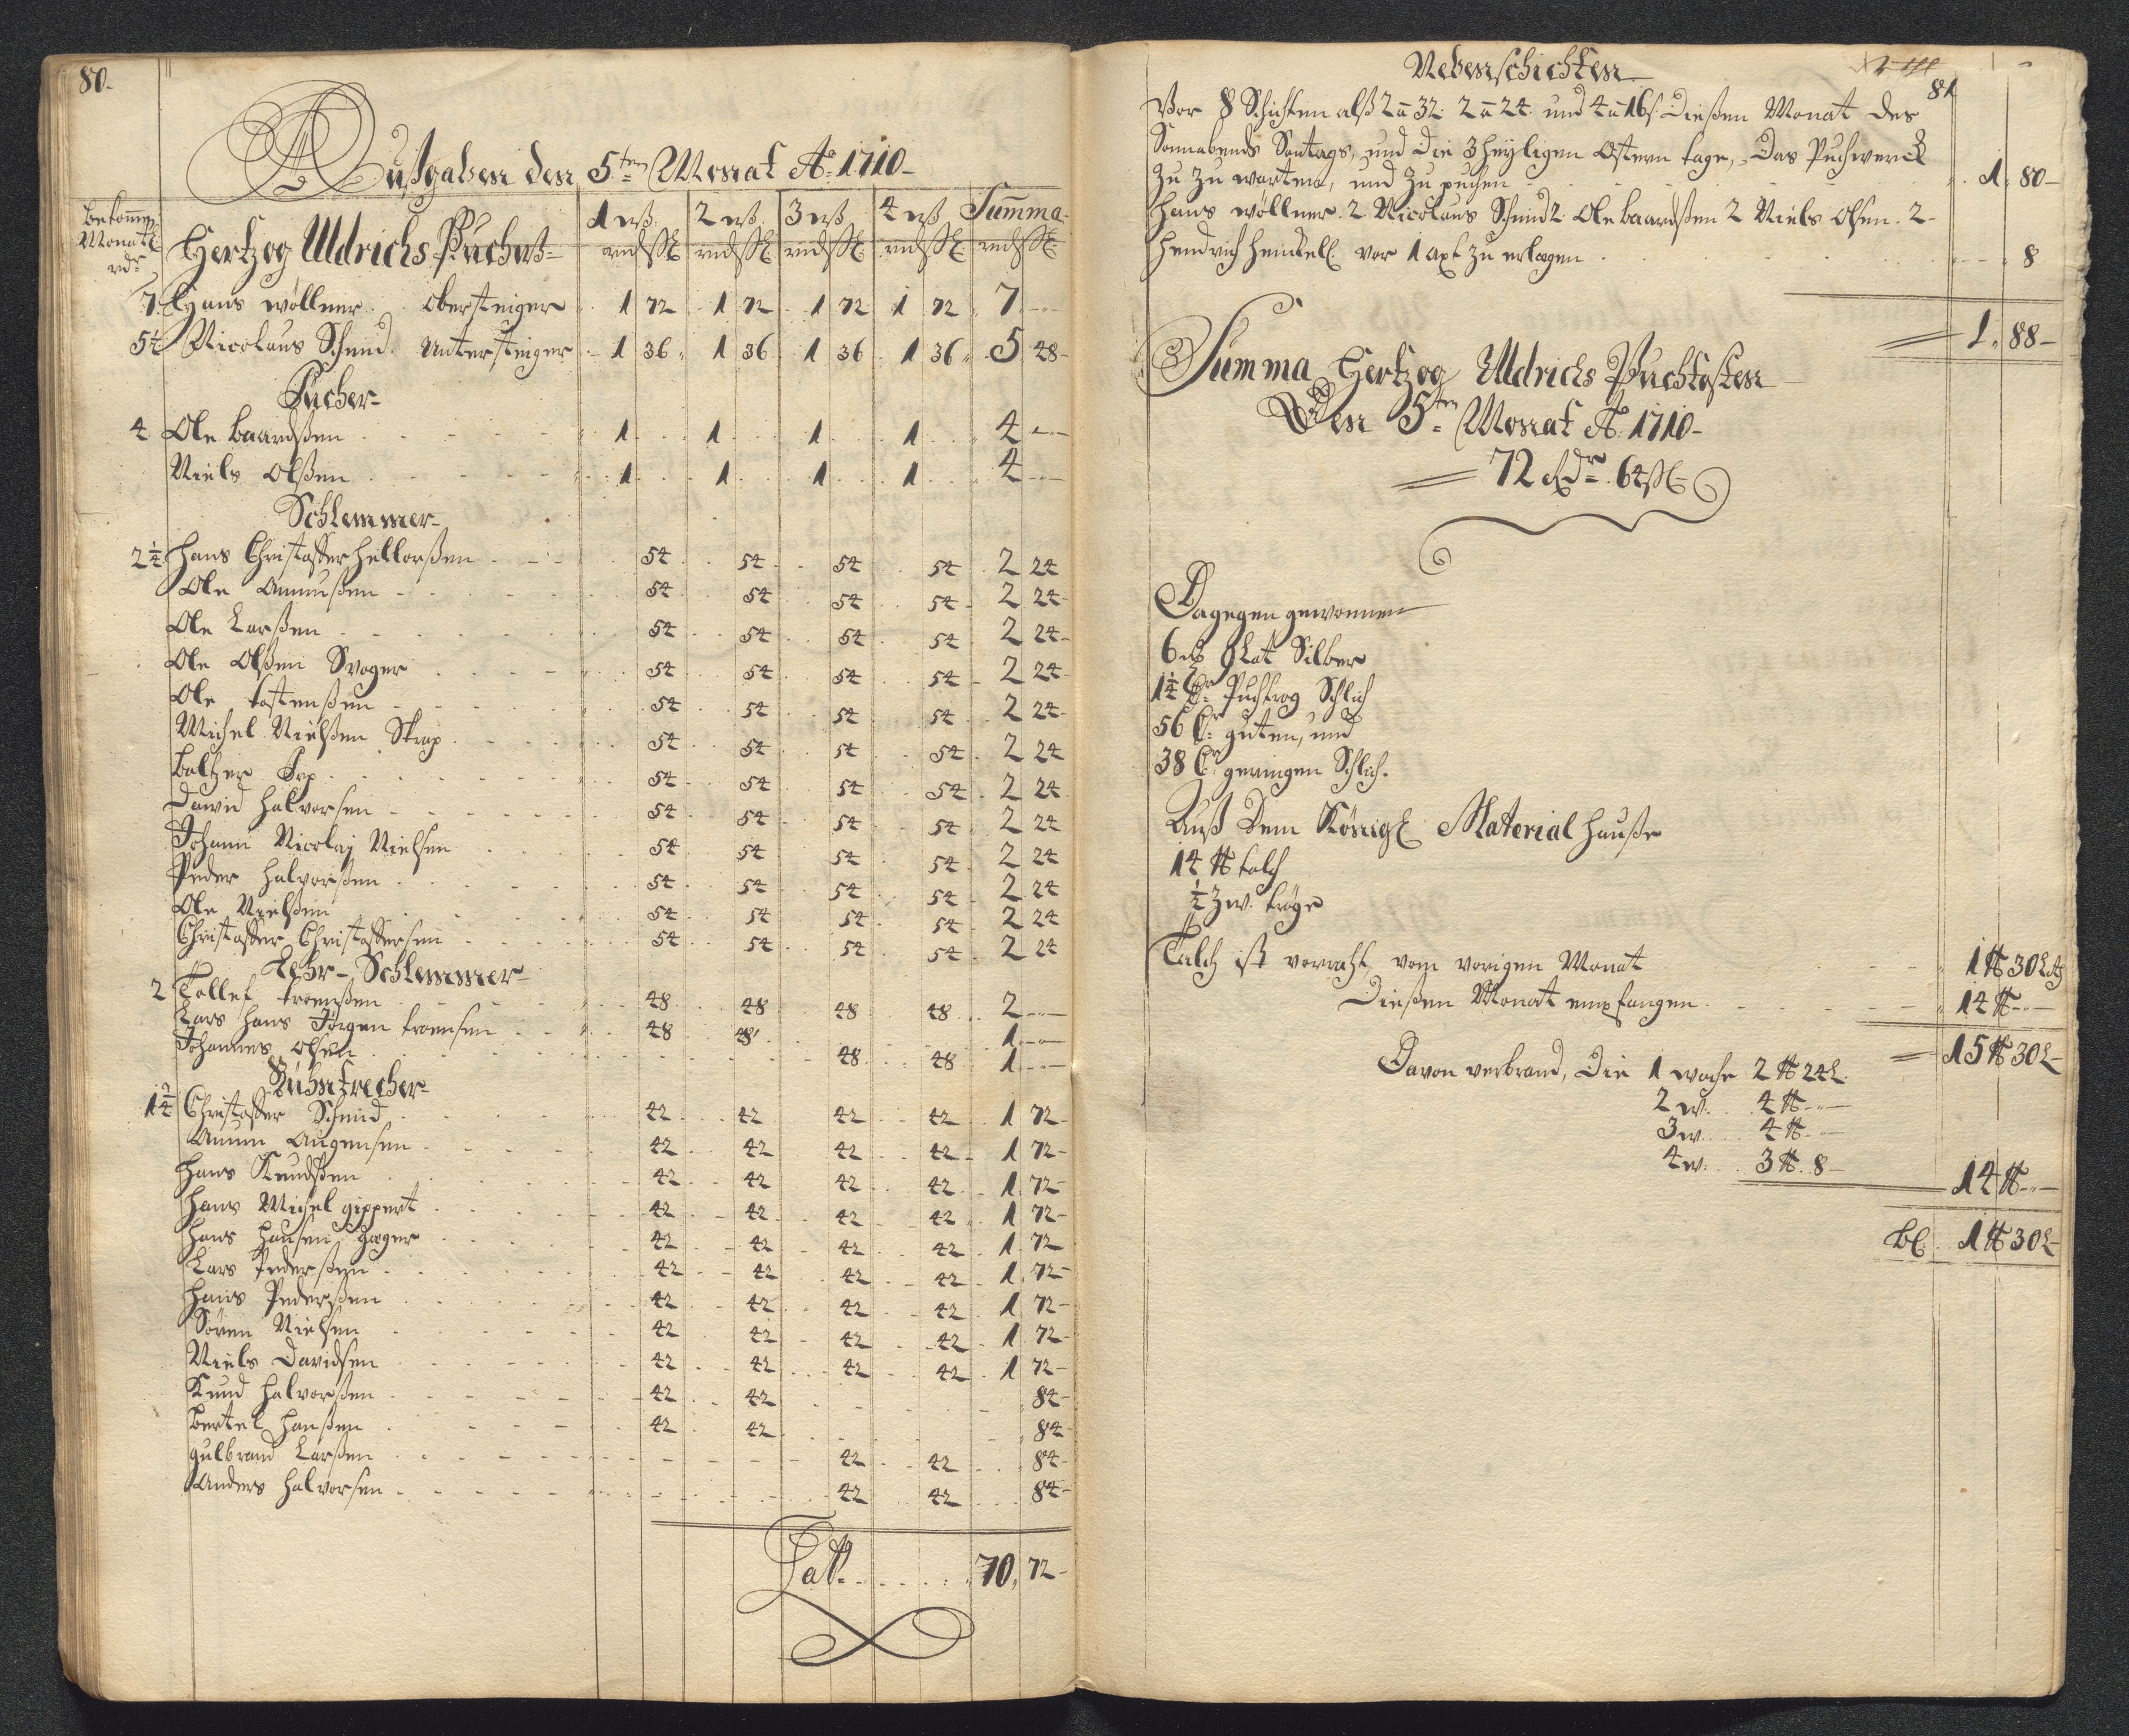 80.
Außgaben den 5ten Monat Ao 1710
Bekommen Monatl. rdr
Hertzog Uldrichs Puchw
1 wß 2 wß 3 wß 4 wß Summa
rd ßl rd ßl rd ßl rd ßl rd ßl
7. Hans wöllner. Obersteiger 1 72 1 72 1 72 1 72 7 --
5½ Nicolaus Schmid. Untersteiger 1 36 1 36 1 36 1 36 5 48
Pucher
4 Ole baardßen 1 1 1 1 4
Niels Olßen 1 1 1 1 4
Schlemmer
2¼ Hans Christoffer Hellorßen 54 54 54 54 2 24
Ole Amundßen 54 54 54 54 2 24
Ole Larßen 54 54 54 54 2 24
Ole Olßen Svoger 54 54 54 54 2 24
Ole tostenßen 54 54 54 54 2 24
Michel Nielßen Skrap 54 54 54 54 2 24
Baltzer 54 54 54 54 2 24
David Halvorsen 54 54 54 54 2 24
Johann Nicolaj Nielsen 54 54 54 54 2 24
Peder Halvorßen 54 54 54 54 2 24
Ole Nielßen 54 54 54 54 2 24
Christoffer Christoffersen 54 54 54 54 2 24
Lehr-Schlemmer
2 Tollef troenßen 48 48 48 48 2
Lars Hans Jörgen troensen 48 48 1
Johannes Olsen 48 48 1
1¾ Christoffer Schmid 42 42 42 42 1 72
Amun Augensen 42 42 42 42 1 72
Hans Knudßen 42 42 42 42 1 72
Hans Michel gippert 42 42 42 42 1 72
Hans Hansen 42 42 42 42 1 72
Lars Pederßen 42 42 42 42 1 72
Hans Pederßen 42 42 42 42 1 72
Sören Nielsen 42 42 42 42 1 72
Niels Davidsen 42 42 42 42 1 72
Knud Halvorßen 42 42 84
Bertel Hanßen 42 42 84
gulbrand Larßen 42 42 84
Anders Halvorsen 42 42 84
Latt. 70, 72
81
Nebenschichten
Vor 8 Schichten alß 2 a 32. 2 a 24. und 4 a 16 s. dießen Monat des
Sonnabends Sontags, und die 3 Heyligen Ostern tage, Das Puchwerck
zu zu warten, und zu puchen 1, 80
Hans wöllner. 2. Nicolaus Schmid 2 Ole baardßen 2 Niels Olsen. 2
Hendrich Heinckell. vor 1 axt zu erlægen 8
1, 88
Summa Hertzog Uldrichs Puchkosten
Den 5ten Monat Ao 1710
72 Rdr. 64 ßl
Dagegen gewonnen
6 9 Lot Silber
1¼ Cr. Puchtrog Schlich
56 Cr. guten, und
38 Cr. geringen Schlich.
Auß Dem Königl. Material Hauße
14 ℔ talch
½ zw. tröge
Talch ist vorraht, vom vorigen Monat 1 ℔ 30 Lot
Dießen Monat empfangen 14 ℔
15 ℔ 30 L
Davon verbrand, Die 1 woche 2 ℔ 24 L.
2 w. 4 ℔
3 w. 4 ℔
4 w. 3 ℔. 8
14 ℔
bl. 1 ℔ 30 L